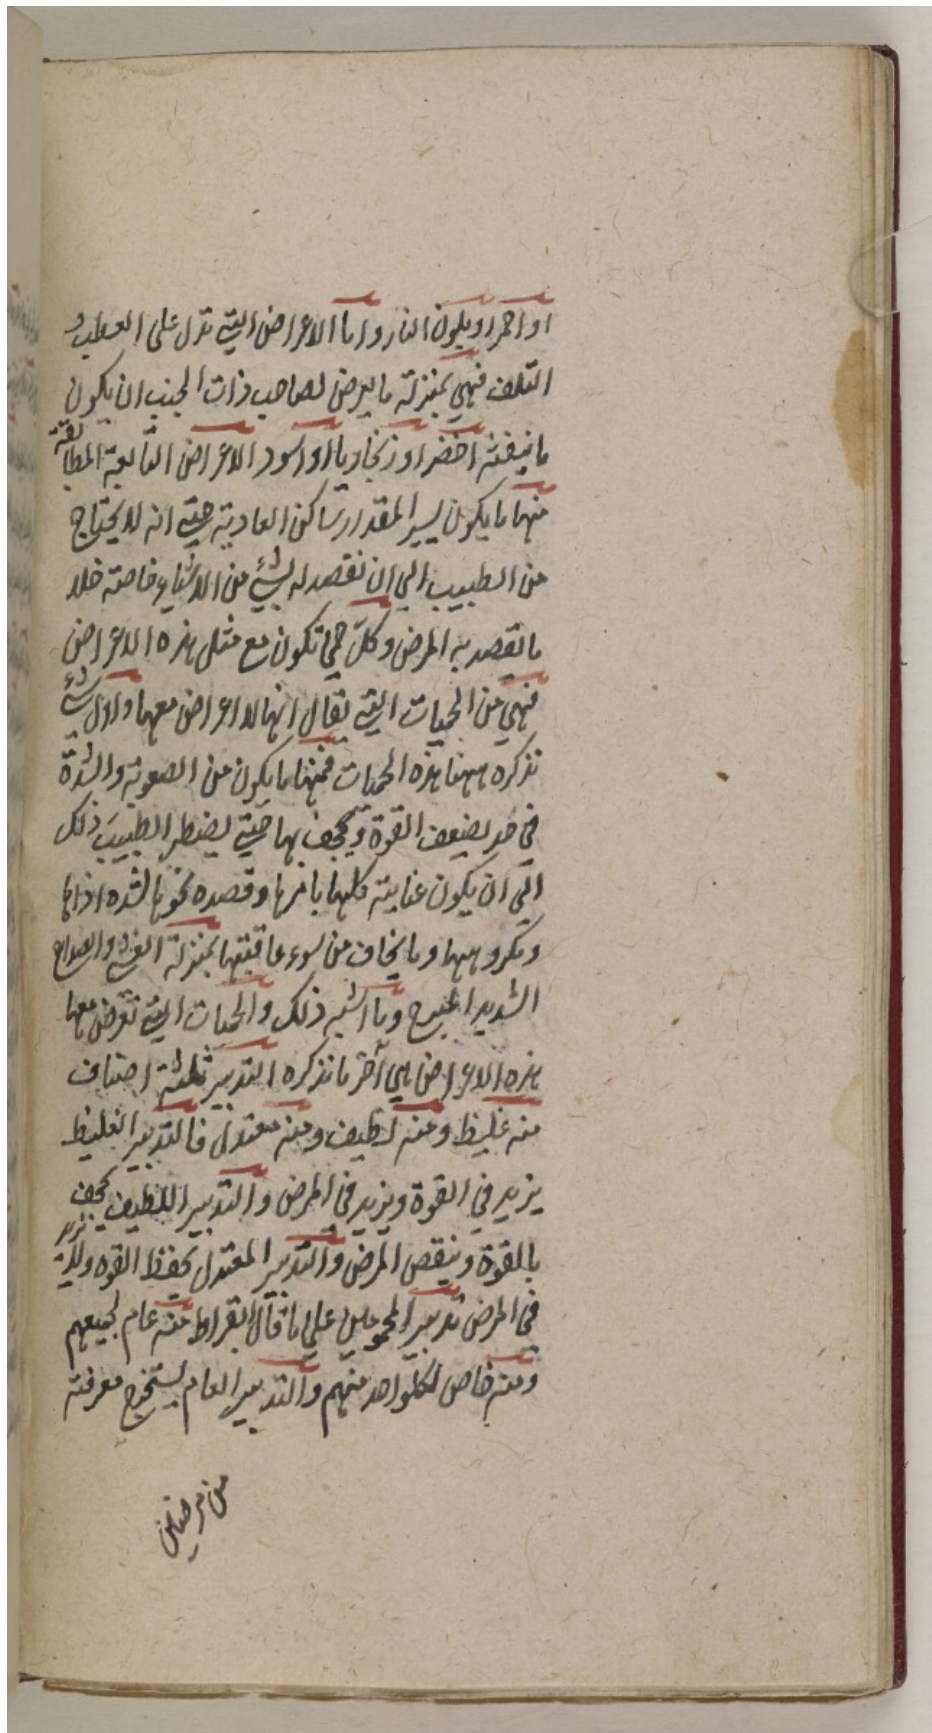 او احمر او بلون النار واما الاعراض التي تدل على العطب و
التلف فهي بمنزلة ما يعرض لصاحب ذات الجنب ان يكون
ما ينفثه اخضر او زنجاريا او اسود الاعراض التابعة المطابقة
منها ما يكون يسير المقدار ساكن العادية حتى انه لا يحتاج
من الطبيب الى ان نقصد له لشئ من الاشياء خاصة خلا
ما يقصد به المرض وكل حمى تكون مع مثل هذه الاعراض
فهي من الحميات التي يقال انها لا اعراض معها واول شئ
نذكره ههنا هذه الحميات فمنها ما يكون من الصعوبة والشدة
في حد يضعف القوة ويجحف بها حتى يضطر الطبيب ذلك
الى ان يكون عنايته كلها بامرها وقصده نحوها لشده اذاها
ومكروهها وما يخاف من سوء عاقبتها بمنزلة الغشي والصداع
الشديد المبرح وما اشبه ذلك والحميات التي تعرض معها
هذه الاعراض هي آخر ما نذكره التدبير ثلثة اصناف
منه غليظ ومنه لطيف ومنه معتدل فالتدبير الغليظ
يزيد في القوة ويزيد في المرض والتدبير اللطيف يجحف
بالقوة وينقص المرض والتدبير المعتدل يحفظ القوه ولا يزيد
في المرض تدبير المحمومين على ما قال ابقراط منه عام لجميعهم
ومنه خاص لكلواحد منهم والتدبير العام يستخرج معرفته